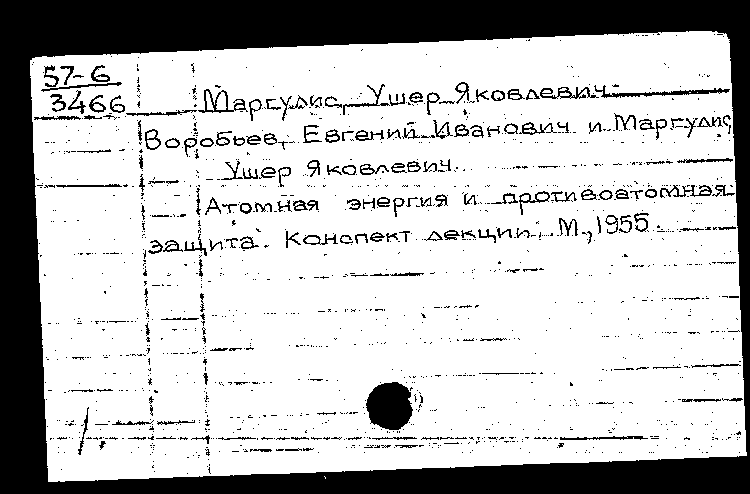 57-6
3466
Маргулис, Ушер Яковлевич.
Воробьев, Евгений Иванович и Маргулис
Ушер Яковлевич.
Атомная энергия и противоатомная
защита. Конспект лекции. М., 1955.
1.